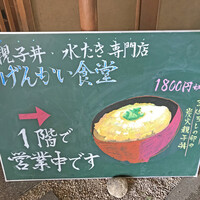 親子丼・水たき専門店
げんかい食堂
→
1階で
営業中です
1800円
炭火親子丼